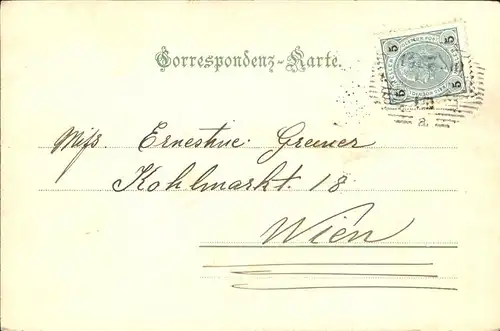 Correspondenz-Karte.
5 5
5 5
a.
Miss. Ernestine Greiner
Kohlmarkt. 18
Wien